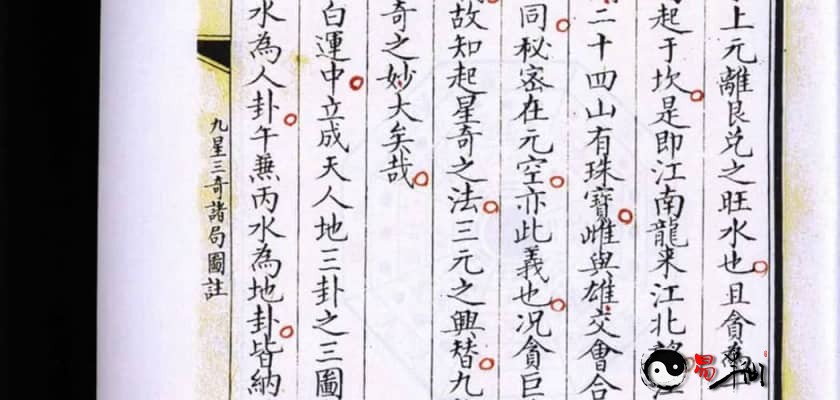 上元離艮兌之旺水也且貪為
起于坎是即江南龍来江北望江
二十四山有珠寶雌與雄交會合
同秘密在元空亦此義也況貪巨
故知起星奇之法三元之興替九
奇之妙大矣哉
白運中立成天人地三卦之三圖
水為人卦午無丙水為地卦皆納
九星三奇諸局圖註